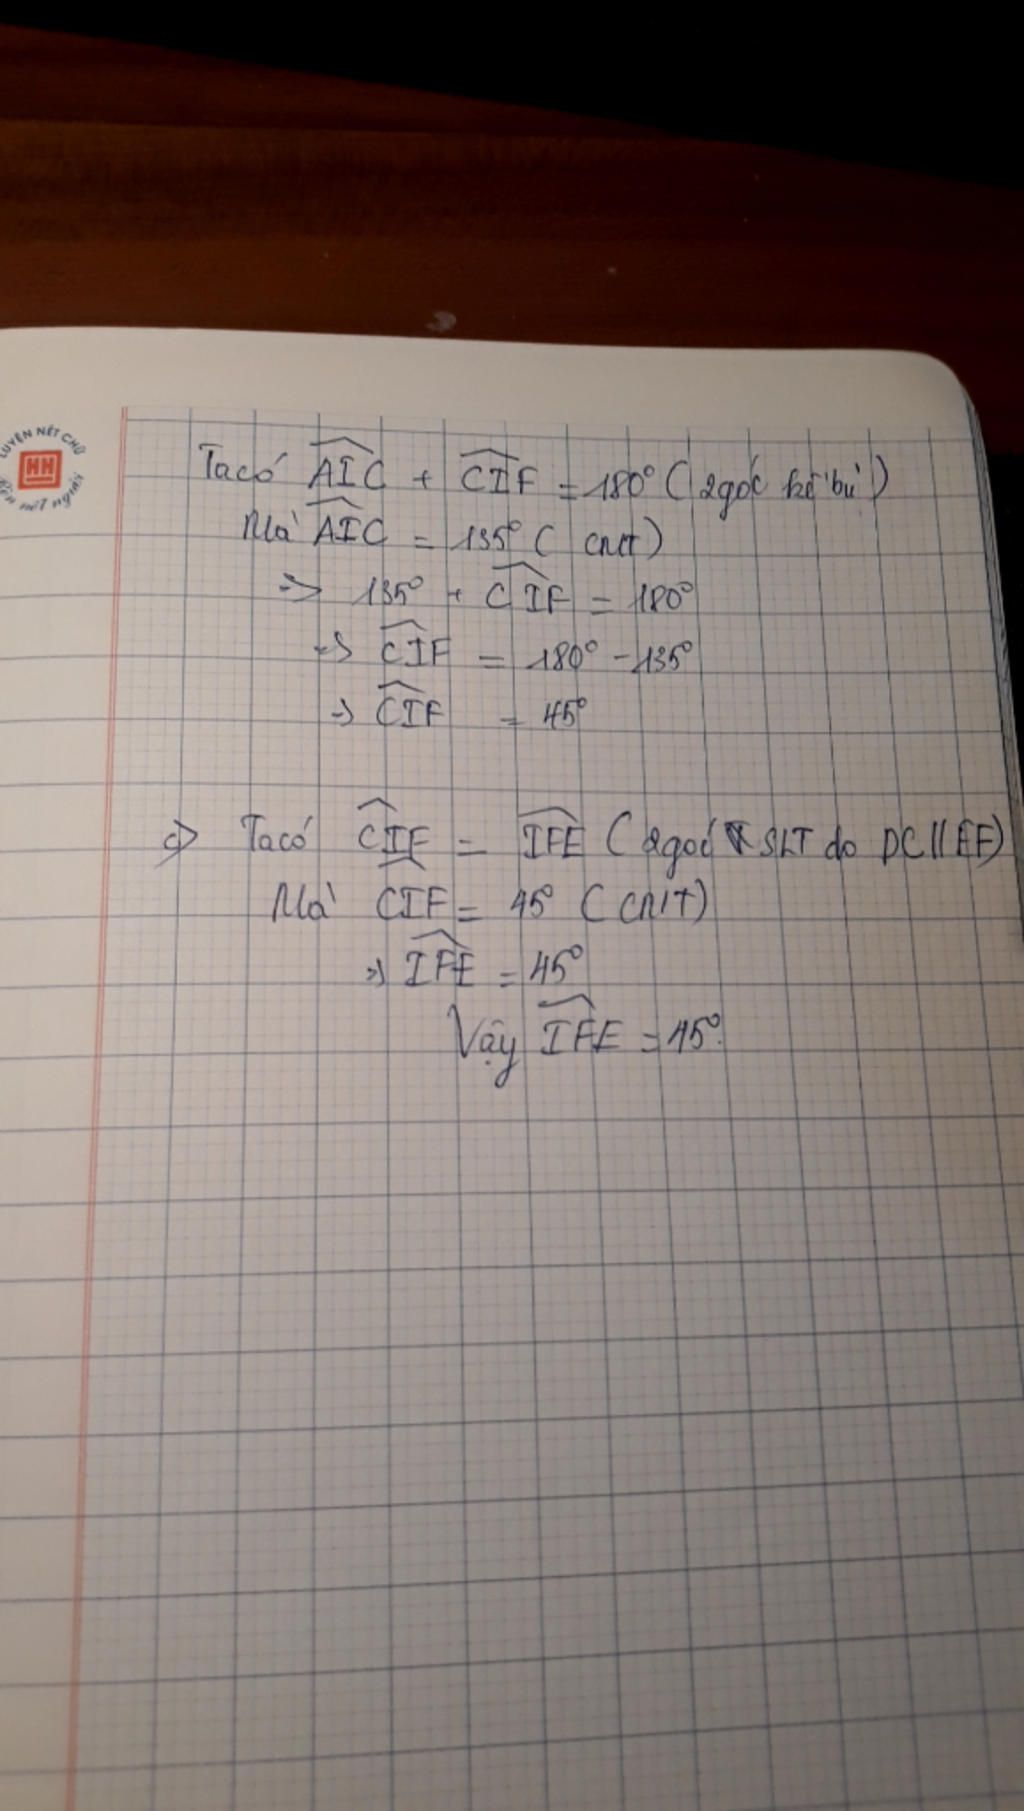 LUYỆN NÉT CHỮ
HH
Rèn nết người
Ta có AIC + CIF = 180° (2 góc kề bù)
Mà AIC = 135° ( cmt)
=> 135° + CIF = 180°
=> CIF = 180° - 135°
=> CIF = 45°
c) Ta có CIF = IFE (2 góc SLT do DC // EF)
Mà CIF = 45° (cmt)
=> IFE = 45°
Vậy IFE = 45°.